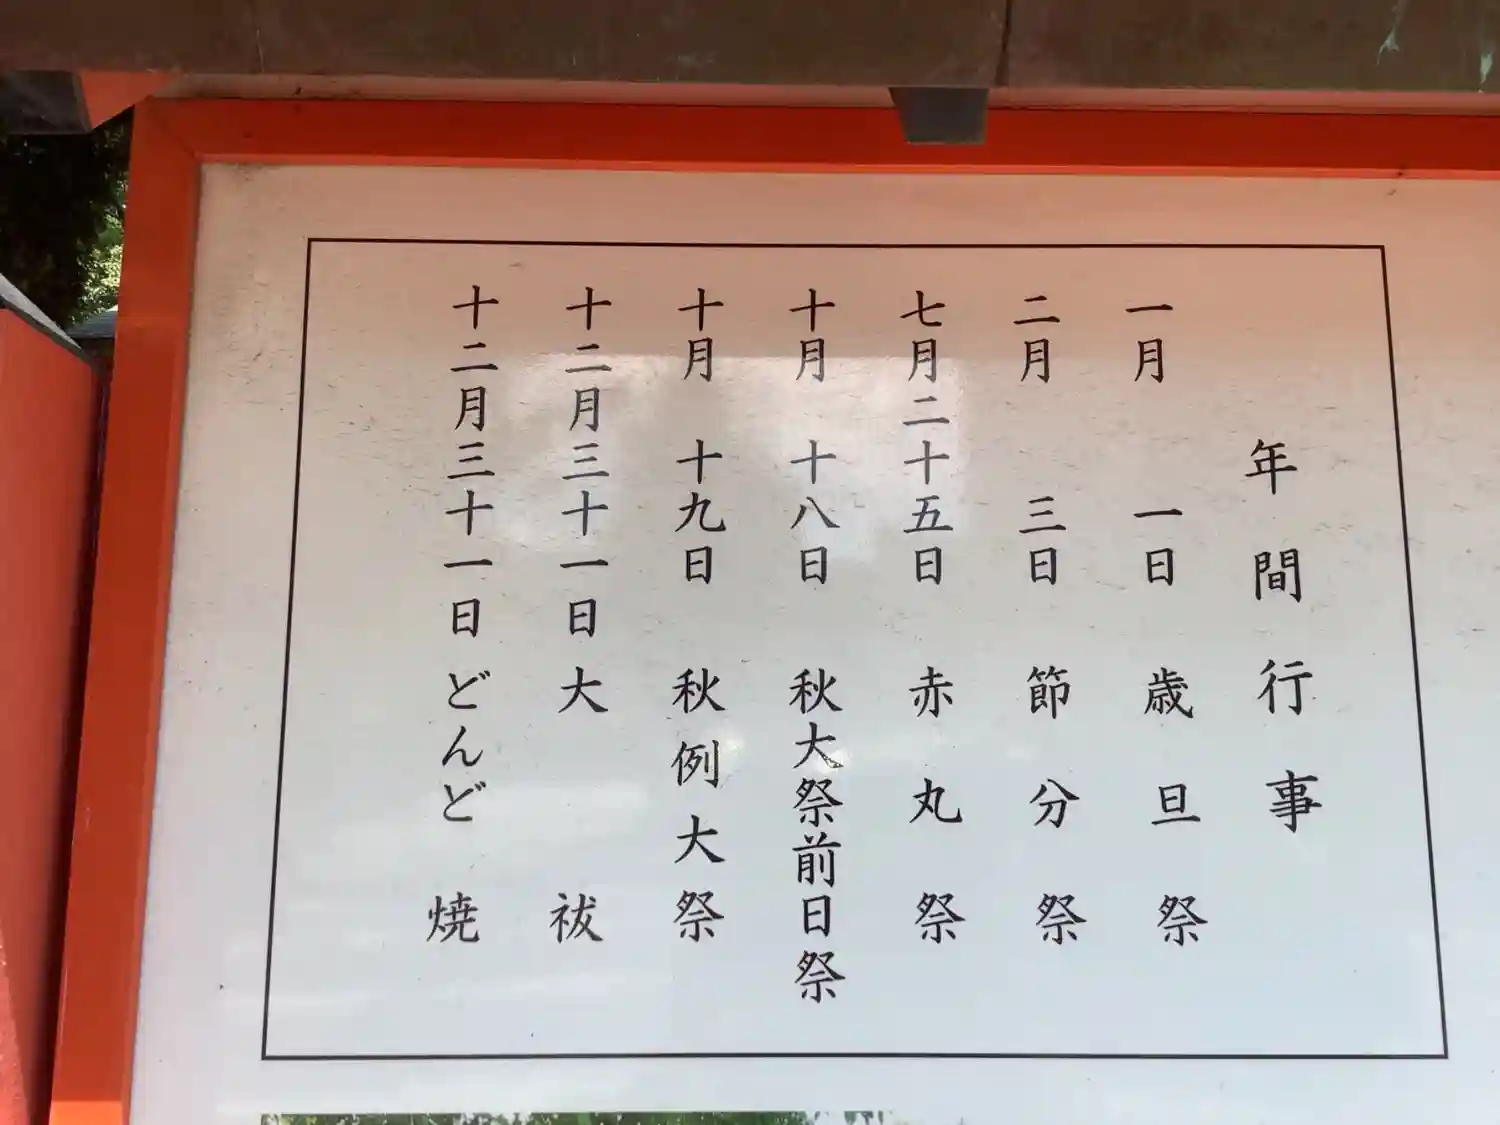 年間行事
一月 一日 歳旦祭
二月 三日 節分祭
七月二十五日 赤丸祭
十月 十八日 秋大祭前日祭
十月 十九日 秋例大祭
十二月三十一日 大祓
十二月三十一日 どんど焼